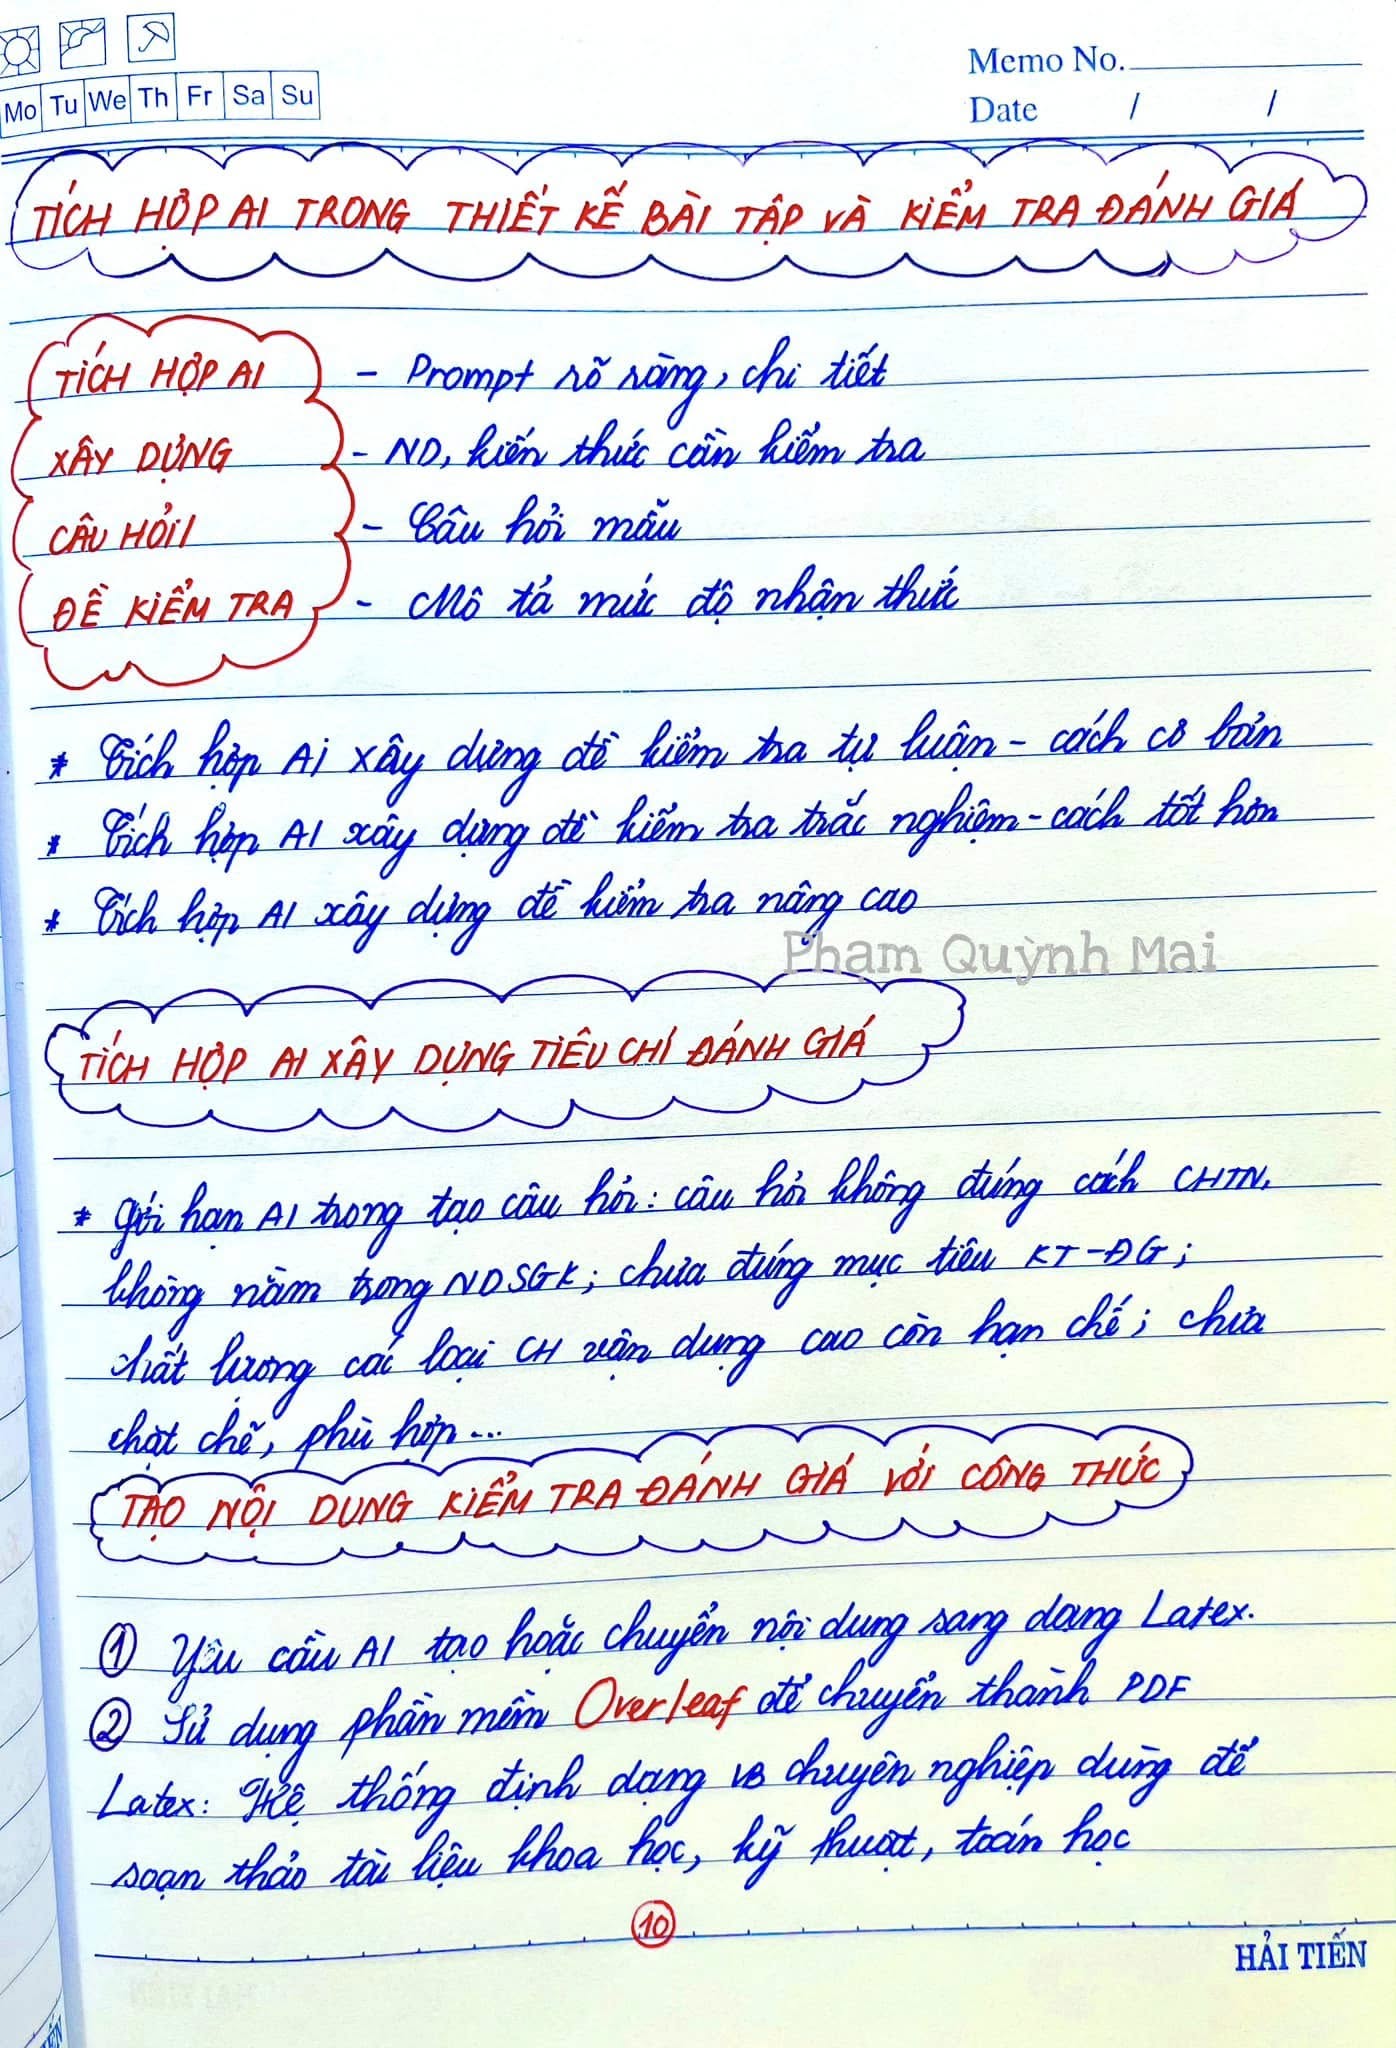 Mo Tu We Th Fr Sa Su
Memo No.
Date / /
TÍCH HỢP AI TRONG THIẾT KẾ BÀI TẬP VÀ KIỂM TRA ĐÁNH GIÁ
TÍCH HỢP AI
- Prompt rõ ràng, chi tiết
XÂY DỰNG
- ND, kiến thức cần kiểm tra
CÂU HỎI/
- Câu hỏi mẫu
ĐỀ KIỂM TRA
- Mô tả mức độ nhận thức
* Tích hợp AI xây dựng đề kiểm tra tự luận - cách cơ bản
* Tích hợp AI xây dựng đề kiểm tra trắc nghiệm - cách tốt hơn
* Tích hợp AI xây dựng đề kiểm tra nâng cao
Phạm Quỳnh Mai
TÍCH HỢP AI XÂY DỰNG TIÊU CHÍ ĐÁNH GIÁ
* Giới hạn AI trong tạo câu hỏi: câu hỏi không đúng cách CHTN,
không nằm trong NDSGK; chưa đúng mục tiêu KT-ĐG;
chất lượng các loại CH vận dụng cao còn hạn chế; chưa
chặt chẽ, phù hợp...
TẠO NỘI DUNG KIỂM TRA ĐÁNH GIÁ VỚI CÔNG THỨC
① Yêu cầu AI tạo hoặc chuyển nội dung sang dạng Latex.
② Sử dụng phần mềm Overleaf để chuyển thành PDF
Latex: Hệ thống định dạng VB chuyên nghiệp dùng để
soạn thảo tài liệu khoa học, kỹ thuật, toán học
10
HẢI TIẾN